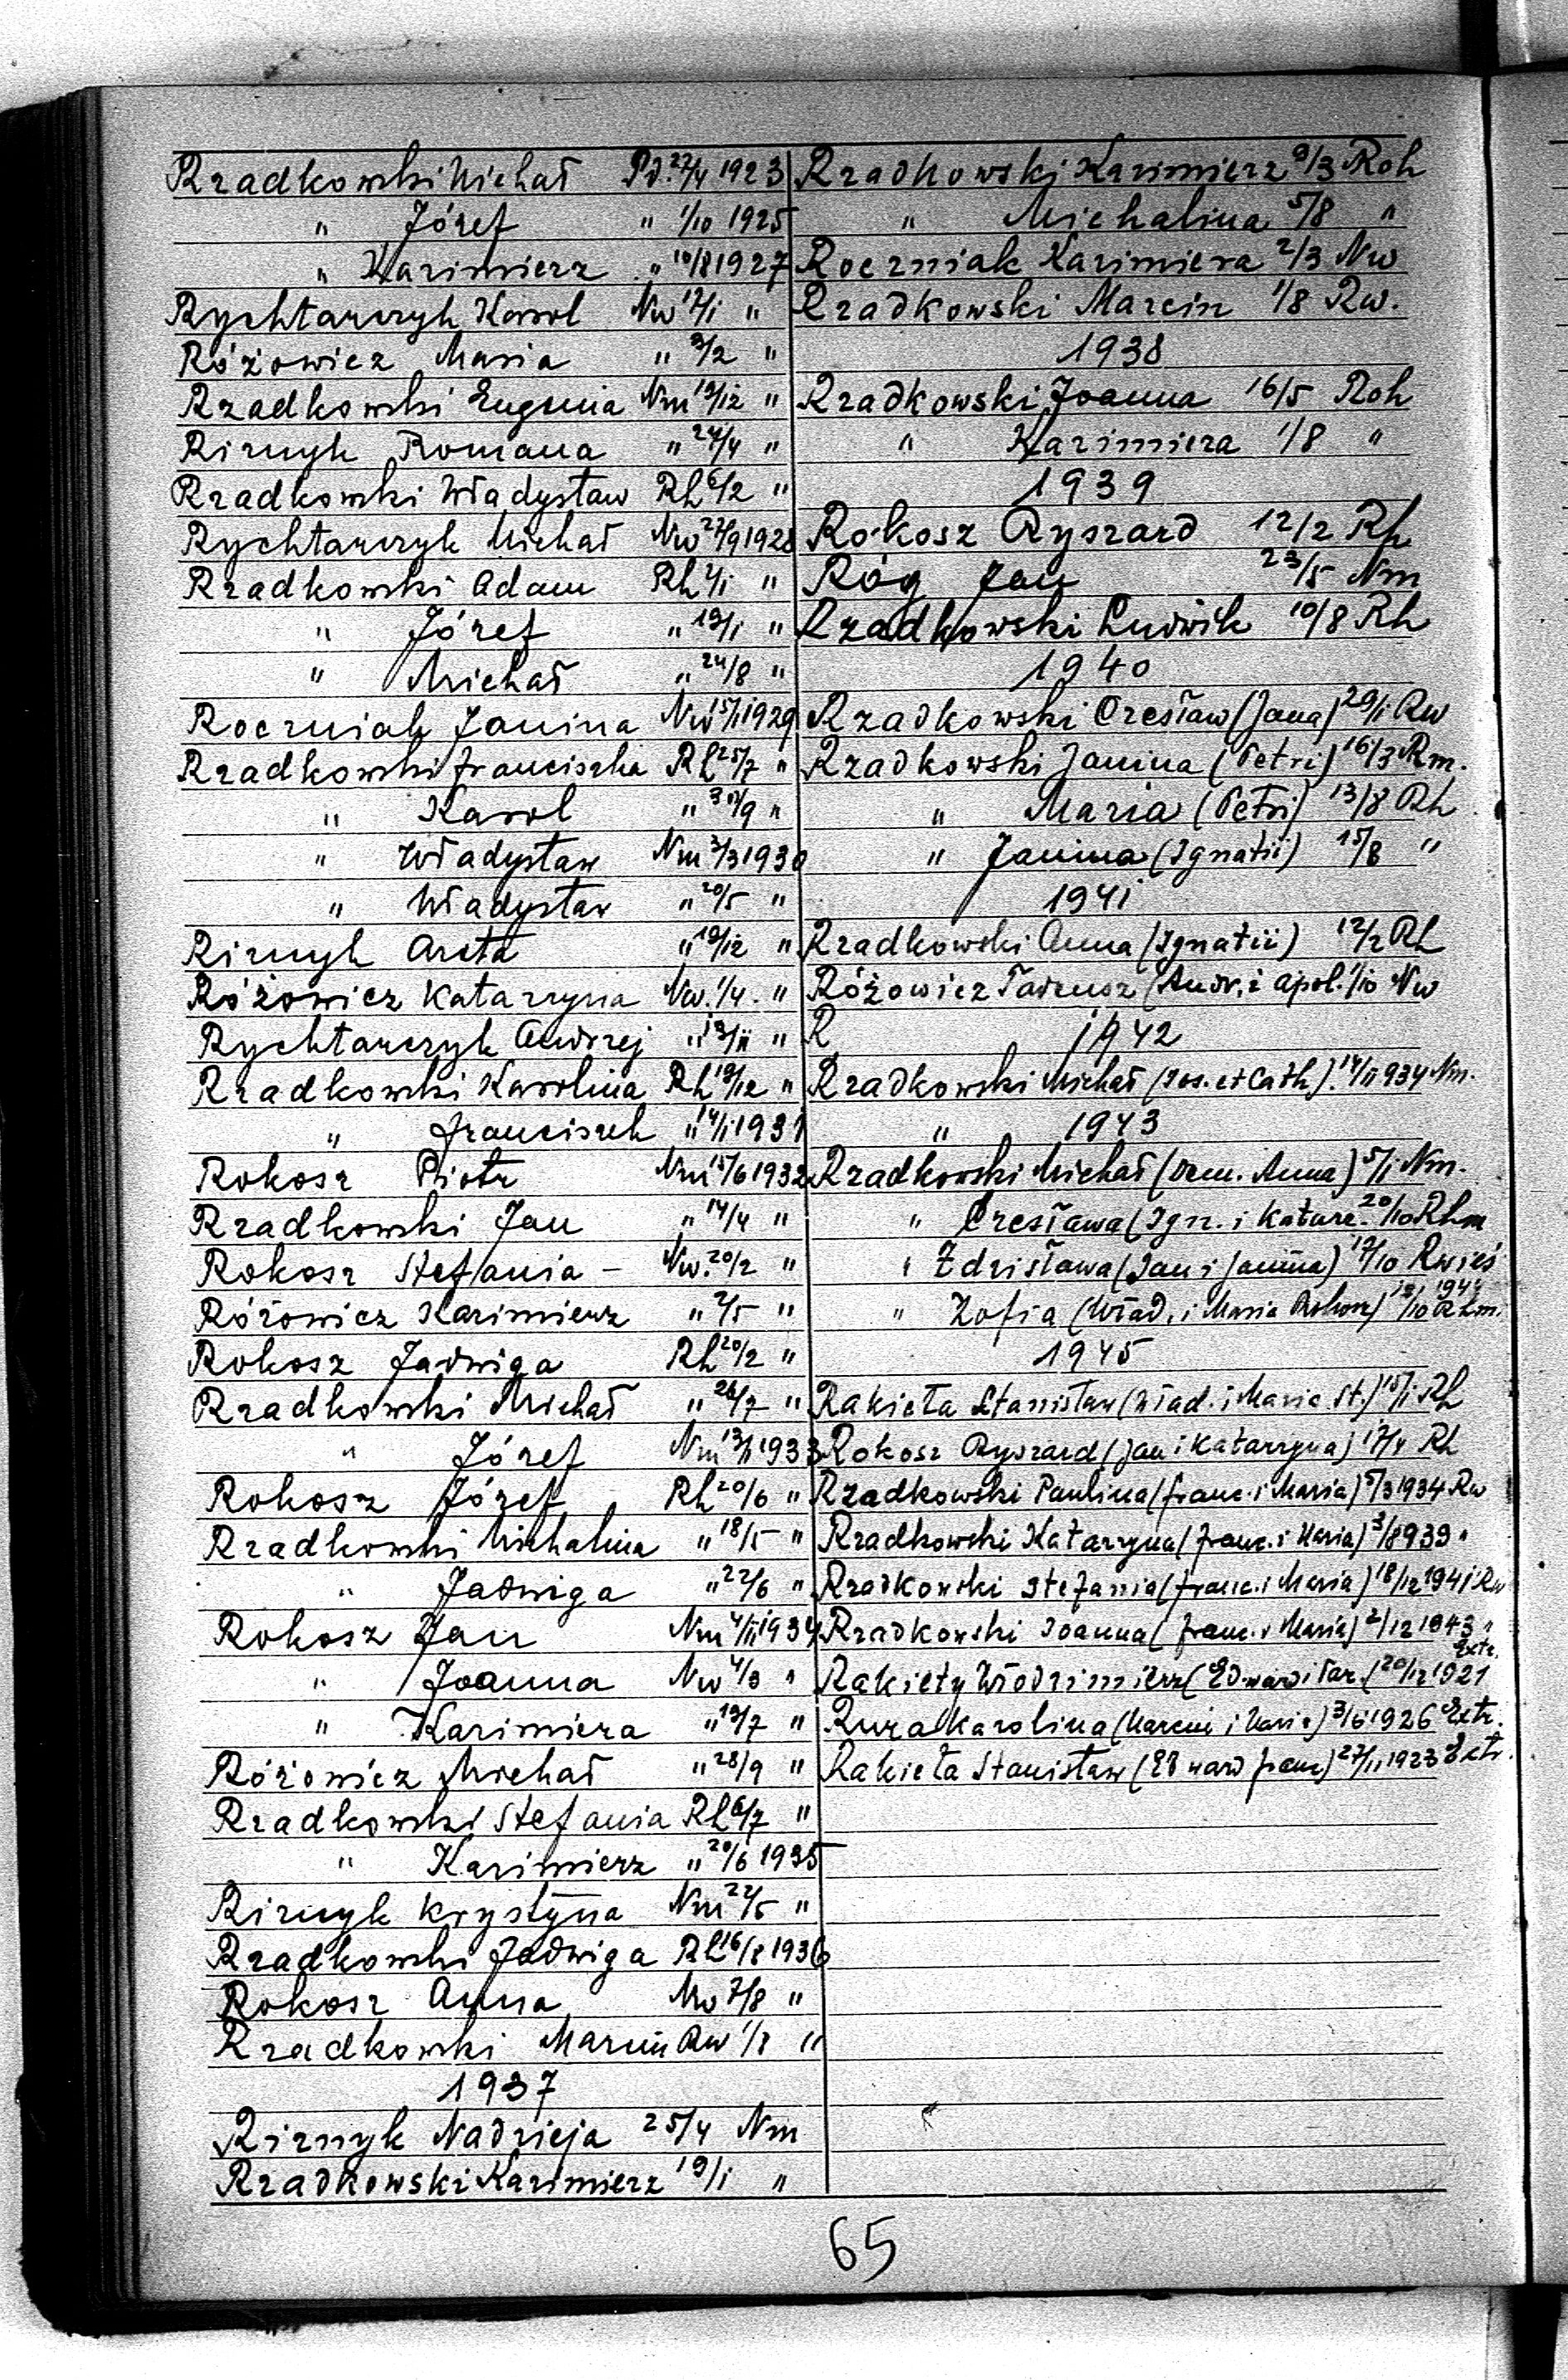 Rzadkowski Michał Pd. 22/4 1923
" Józef " 1/10 1925
" Kazimierz " 10/8 1927
Rychtarczyk Karol Nw 17/1 "
Różowicz Maria " 9/2 "
Rzadkowski Eugenia Nm 19/12 "
Riznyk Romana " 24/4 "
Rzadkowski Władysław Rh 6/2 "
Rychtarczyk Michał Nw 22/9 1928
Rzadkowski Adam Rh 2/1 "
" Józef " 19/1 "
" Michał " 24/8 "
Roczniak Janina Nw 15/1 1929
Rzadkowski Franciszka Rh 25/7 "
" Karol " 30/9 "
" Władysław Nm 3/3 1930
" Władysław " 20/5 "
Riznyk Areta " 19/12 "
Różowicz Katarzyna Nw. 1/4. "
Rychtarczyk Andrzej " 13/11 "
Rzadkowski Karolina Rh 19/12 "
" Franciszek " 14/1 1931
Rokosz Piotr Nm 15/6 1932
Rzadkowski Jan " 14/4 "
Rokosz Stefania – Nw. 20/2 "
Różowicz Kazimierz " 2/5 "
Rokosz Jadwiga Rh 20/2 "
Rzadkowski Michał " 26/7 "
" Józef Nm 13/1 1933
Rokosz Józef Rh 20/6 "
Rzadkowski Michalina " 18/5 "
" Jadwiga " 22/6 "
Rokosz Jan Nm 4/11 1934
" Joanna Nw 4/3 "
" Kazimiera " 19/7 "
Różowicz Michał " 28/9 "
Rzadkowski Stefania Rh 6/7 "
" Kazimierz " 20/6 1935
Riznyk Krystyna Nm 22/5 "
Rzadkowski Jadwiga Rh 16/8 1936
Rokosz Anna Nw 7/8 "
Rzadkowski Marcin Rw 1/8 "
1937
Riznyk Nadzieja 25/4 Nm
Rzadkowski Kazimierz 19/1 "
Rzadkowski Kazimierz 9/3 Roh
" Michalina 5/8 "
Roczniak Kazimiera 2/3 Nw
Rzadkowski Marcin 1/8 Rw.
1938
Rzadkowski Joanna 16/5 Roh
" Kazimiera 1/8 "
1939
Rokosz Ryszard 12/2 Rh
Róg Jan 23/5 Nm
Rzadkowski Ludwik 10/8 Rh
1940
Rzadkowski Czesław (Jana) 29/1 Rw
Rzadkowski Janina (Petri) 16/3 Rm.
" Maria (Petri) 13/8 Rh
" Janina (Ignatii) 15/8 "
1941
Rzadkowski Anna (Ignatii) 12/2 Rh
Różowicz Tadeusz (Andr. i Apol. 1/10 Nw
R 1942
Rzadkowski Michał (Jos. et Cath). 14/11 934 Nm.
" 1943
Rzadkowski Michał (Dem. Anna) 5/1 Nm.
" Czesława (Ign. i Katarz. 20/10 Rhm
" Zdzisława (Jan i Janina) 17/10 Rwieś
1944
" Zofia (Wład. i Maria Rokosz) 12/10 Rhm.
1945
Rakieta Stanisław (Wład. i Maria St.) 15/1 Rh
Rokosz Ryszard (Jan i Katarzyna) 17/4 Rh
Rzadkowski Paulina (Franc. i Maria) 5/3 1934 Rw
Rzadkowski Katarzyna (Franc. i Maria) 3/8 939 "
Rzadkowski Stefania (Franc. i Maria) 18/12 1941 Rw
Rzadkowski Joanna (Franc. i Maria) 2/12 1943 "
Extr.
Rakiety Włodzimierz (Edward i Par.) 20/12 1921
Rura Karolina (Marcin i Maria) 3/6 1926 Extr.
Rakieta Stanisław (Edward Franc) 27/11 1923 Extr.
65